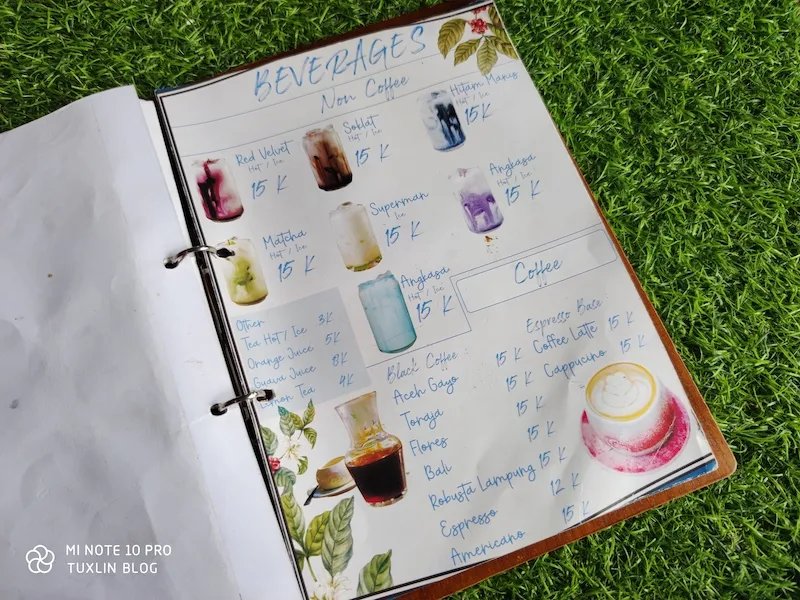 BEVERAGES
Non Coffee
Red Velvet
Hot / Ice
15 K
Soklat
Hot / Ice
15 K
Hitam Manis
Hot / Ice
15K
Matcha
Hot / Ice
15 K
Superman
Ice
15 K
Angkasa
Hot / Ice
15 K
Angkasa
Hot / Ice
15 K
Other
Tea Hot / Ice 3K
Orange Juice 5K
Guava Juice
Lemon Tea 4K
Coffee
Black Coffee
Aceh Gayo 15 K
Toraja 15 K
Flores 15 K
Bali 15 K
Robusta Lampung 15 K
Espresso 12 K
Americano 15 K
Espresso Base
Coffee Latte 15 K
Cappucino 15 K
MI NOTE 10 PRO
TUXLIN BLOG